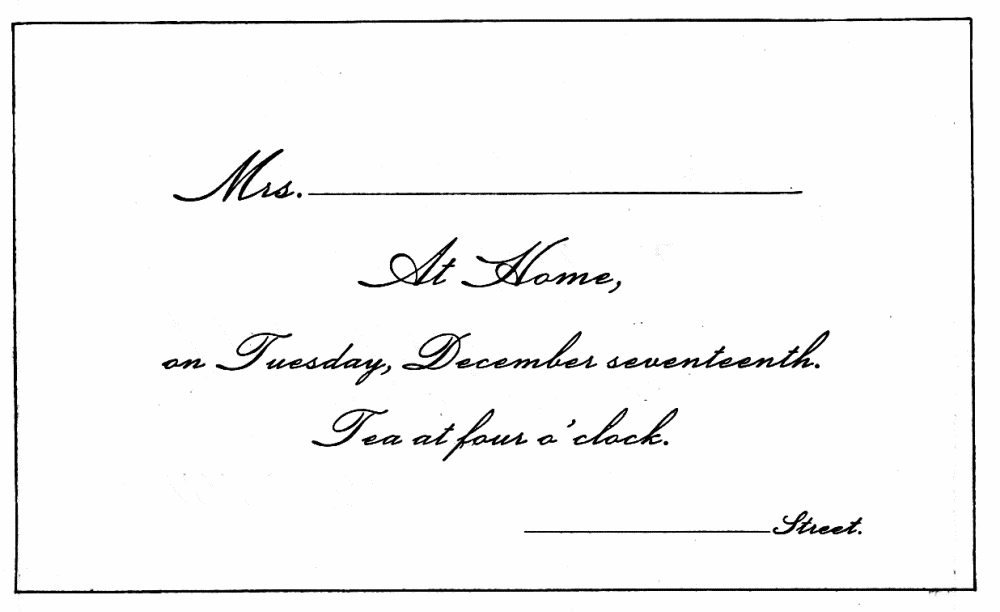 Mrs.
At Home,
on Tuesday, December seventeenth.
Tea at four o'clock.
Street.